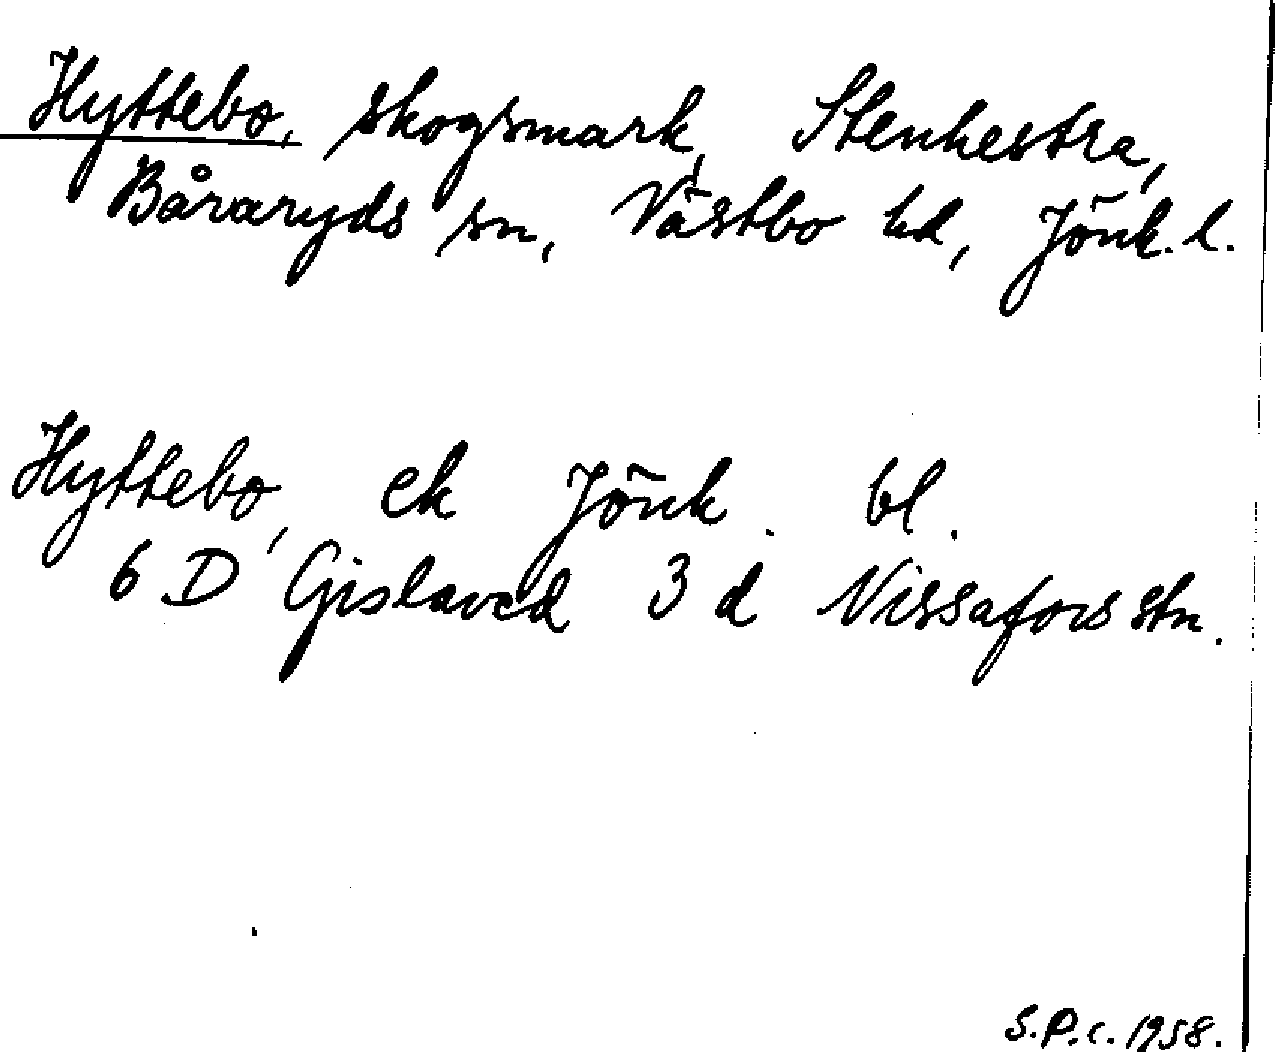 Hyttebo, skogsmark, Stenhestra,
Båraryds sn, Västbo hd, Jönk. l.
Hyttebo, ek Jönk. bl.
6 D Gislaved 3 d Nissafors stn.
S.P.c. 1958.